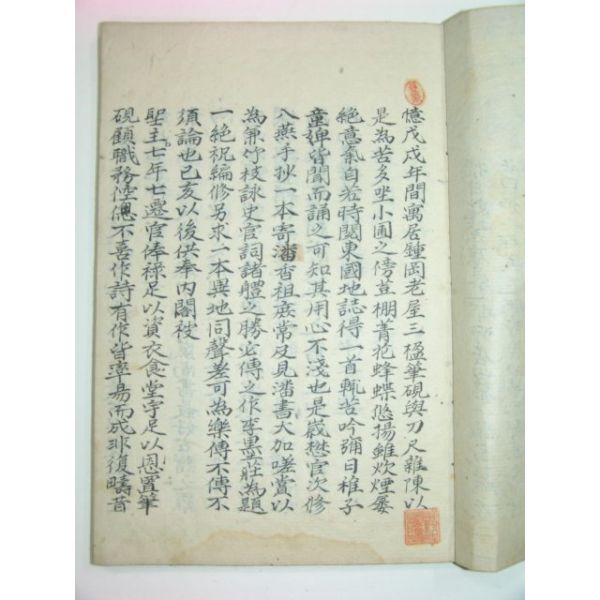 憶戊戌年間寓居鍾岡老屋三楹筆硯與刀尺雜陳以
是為苦多坐小圃之傍荳棚菁花蜂蝶悠揚雖炊煙屢
絶意氣自若時閱東國地誌得一首輒苦吟彌日稚子
童婢皆聞而誦之可知其用心不淺也是歲懋官次修
入燕手抄一本寄潘香祖庶常及見潘書大加嗟賞以
為兼竹枝詠史宮詞諸體之勝必傳之作李墨莊為題
一絶祝編修另求一本異地同聲差可為樂傳不傳不
須論也已亥以後供奉內閣被
聖主七年七遷官俸祿足以資衣食堂宇足以恩置筆
硯顧職務倥傯不喜作詩有作皆率易而成非復疇昔